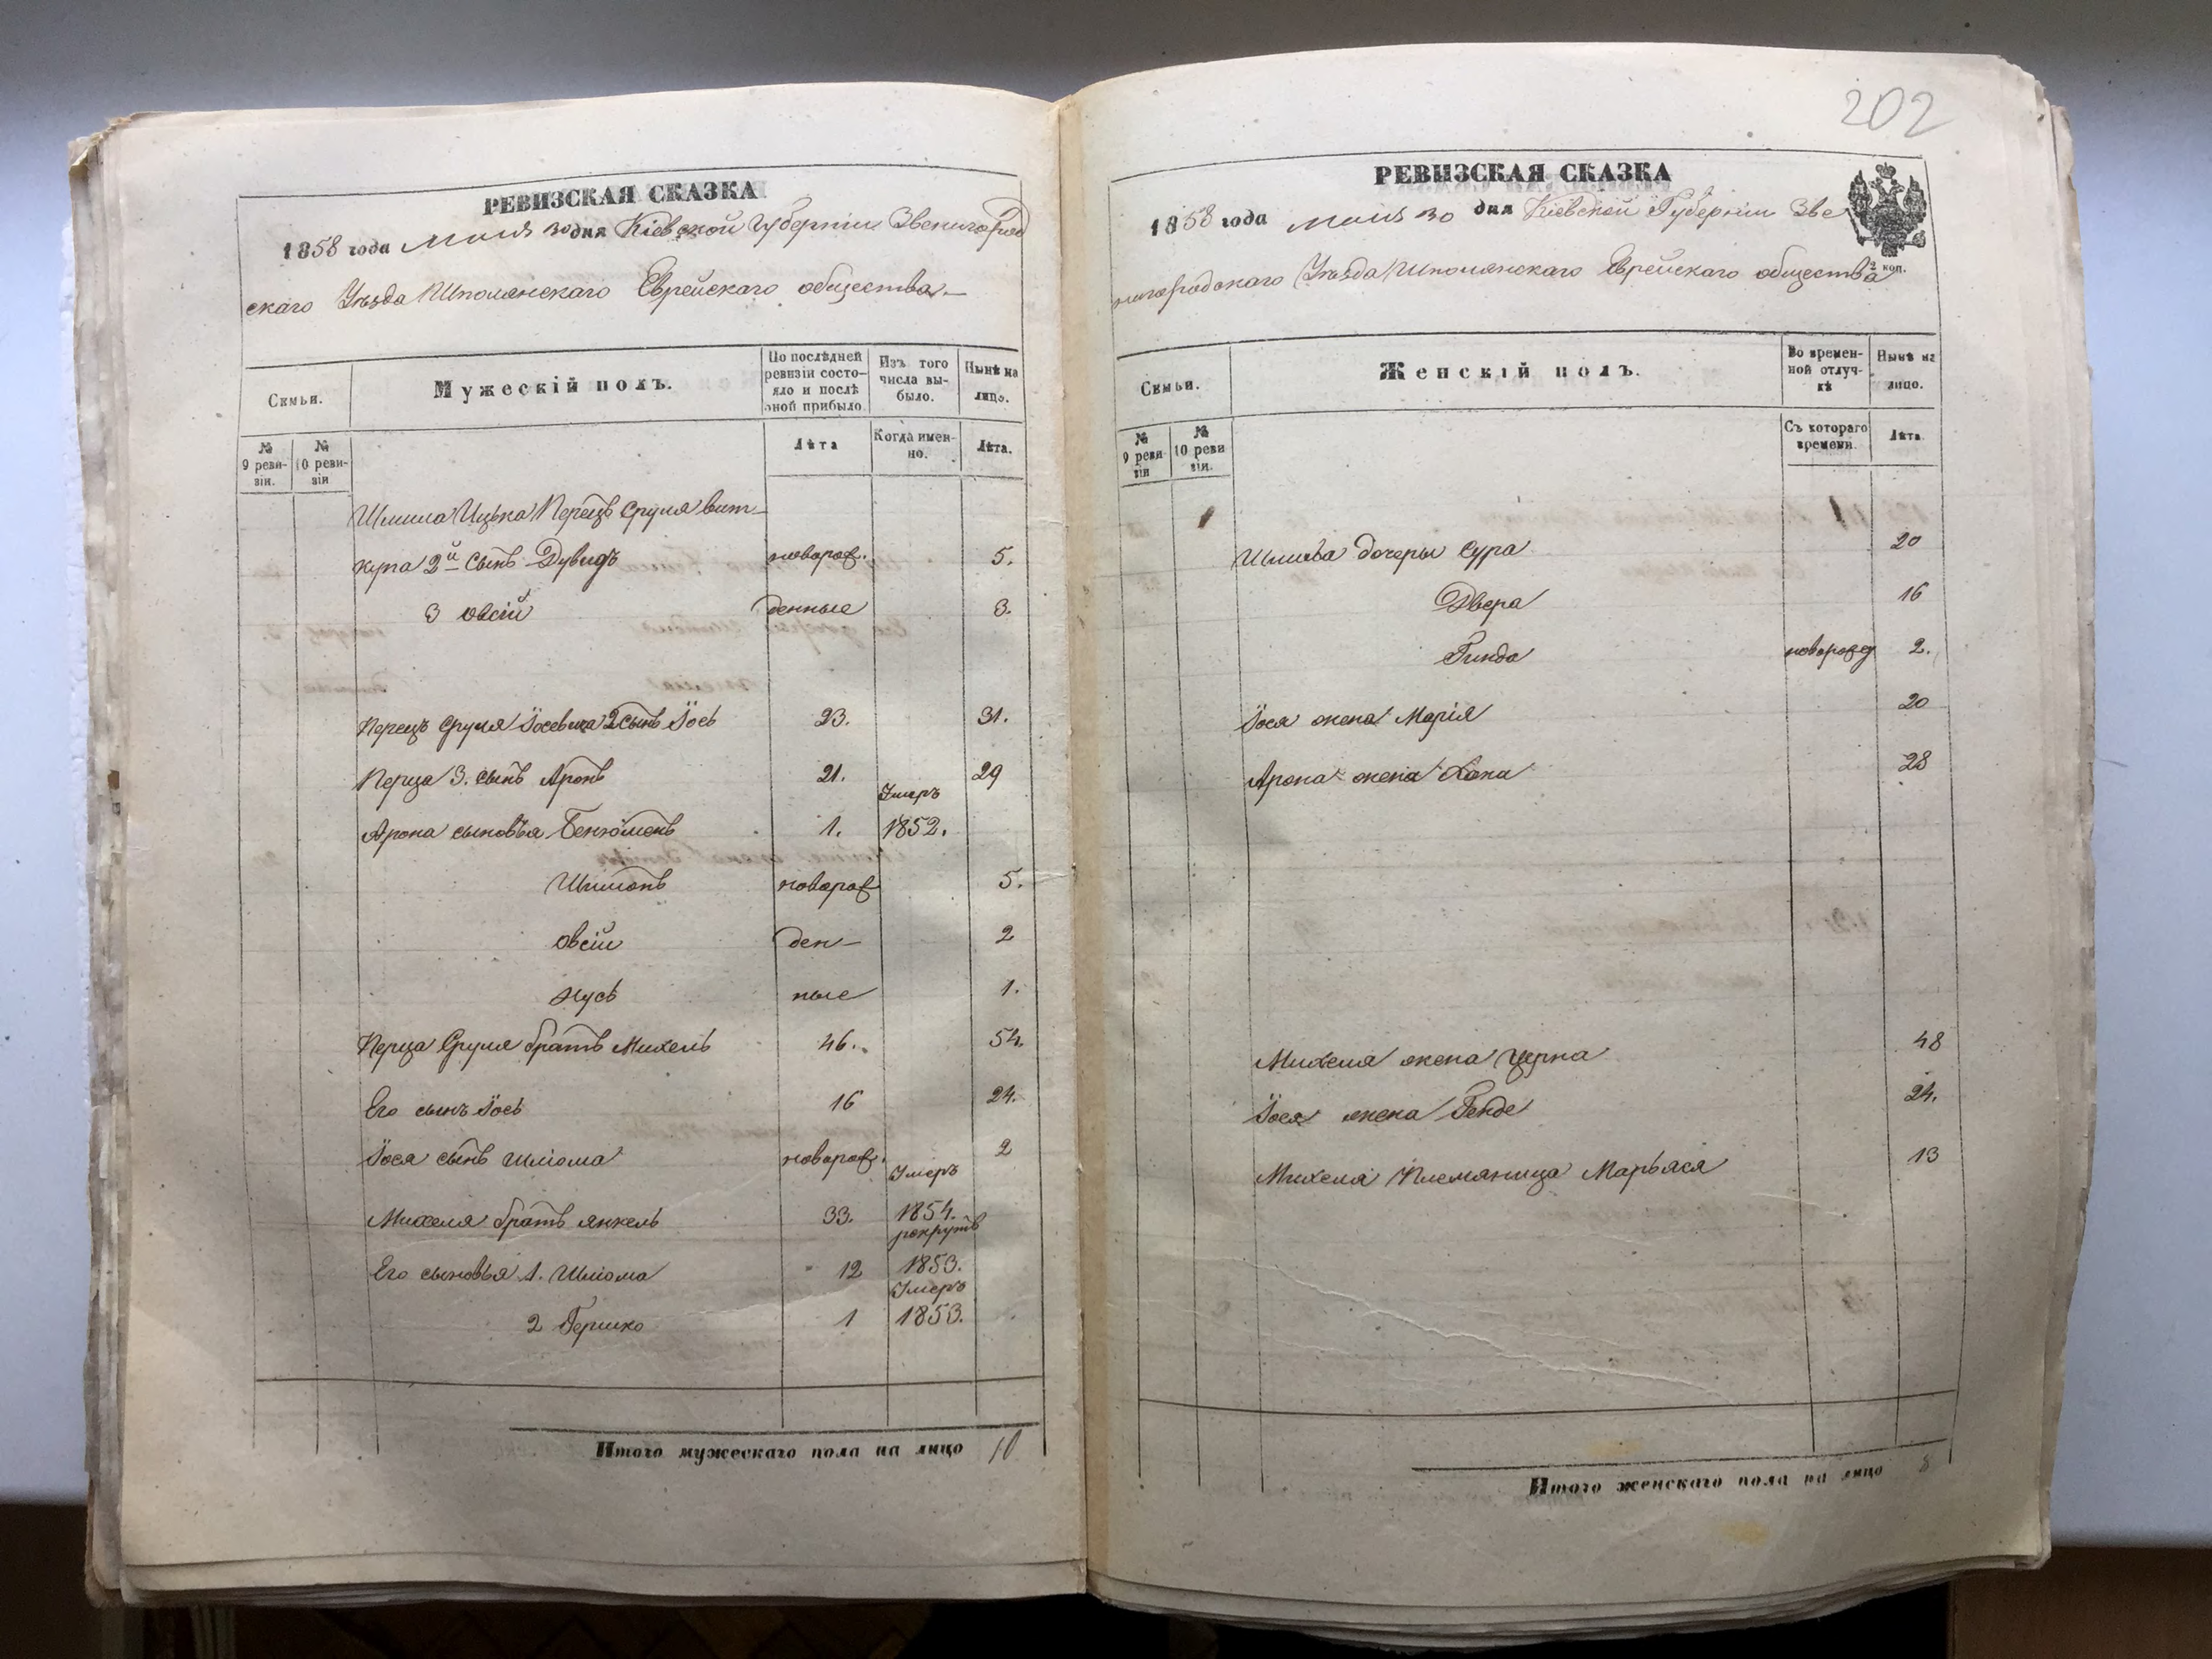 РЕВИЗСКАЯ СКАЗКА
1858 года мая 30 дня Кіевской Губерніи Звенигород
скаго Уѣзда Шполянскаго Еврейскаго общества
Семьи.
Мужескій полъ.
По послѣдней ревизіи состояло и послѣ оной прибыло.
Изъ того числа выбыло.
Нынѣ на лицо.
№ 9 ревизіи.
№ 10 ревизіи
Лѣта
Когда именно.
Лѣта.
Перецъ Сруля
купа 2й сынъ Дувидъ новорож. 5.
3 Овсій денные 3.
Перецъ Сруля Іосевича 2 сынъ Іось 23. 31.
Перца 3. сынъ Аронъ 21. 29
Умеръ
Арона сыновья Бенюменъ 1. 1852.
Шимонъ новорож 5.
Овсій ден- 2
Нусь ные 1.
Перца Сруля братъ Михель 46. 54.
Его сынъ Іось 16 24.
Іося сынъ Шліома новорож. 2
Умеръ
Михеля братъ Янкель 33. 1854.
рекрутъ
Его сыновья 1. Шліома 12 1853.
Умеръ
2 Гершко 1 1853.
Итого мужескаго пола на лицо 10
202
РЕВИЗСКАЯ СКАЗКА
1858 года мая 30 дня Кіевской Губерніи Зве
нигородскаго Уѣзда Шполянскаго Еврейскаго общества
2 коп.
Семьи.
Женскій полъ.
Во временной отлучкѣ
Нынѣ на лицо.
№ 9 ревизіи
№ 10 ревизіи.
Съ котораго времени.
Лѣта
дочери Сура 20
Двера 16
Гинда новорожд 2.
Іося жена Марія 20
Арона жена Хана 28
Михеля жена Черна 48
Іося жена Генде 24.
Михеля Племяница Марьяся 13
Итого женскаго пола на лицо 8